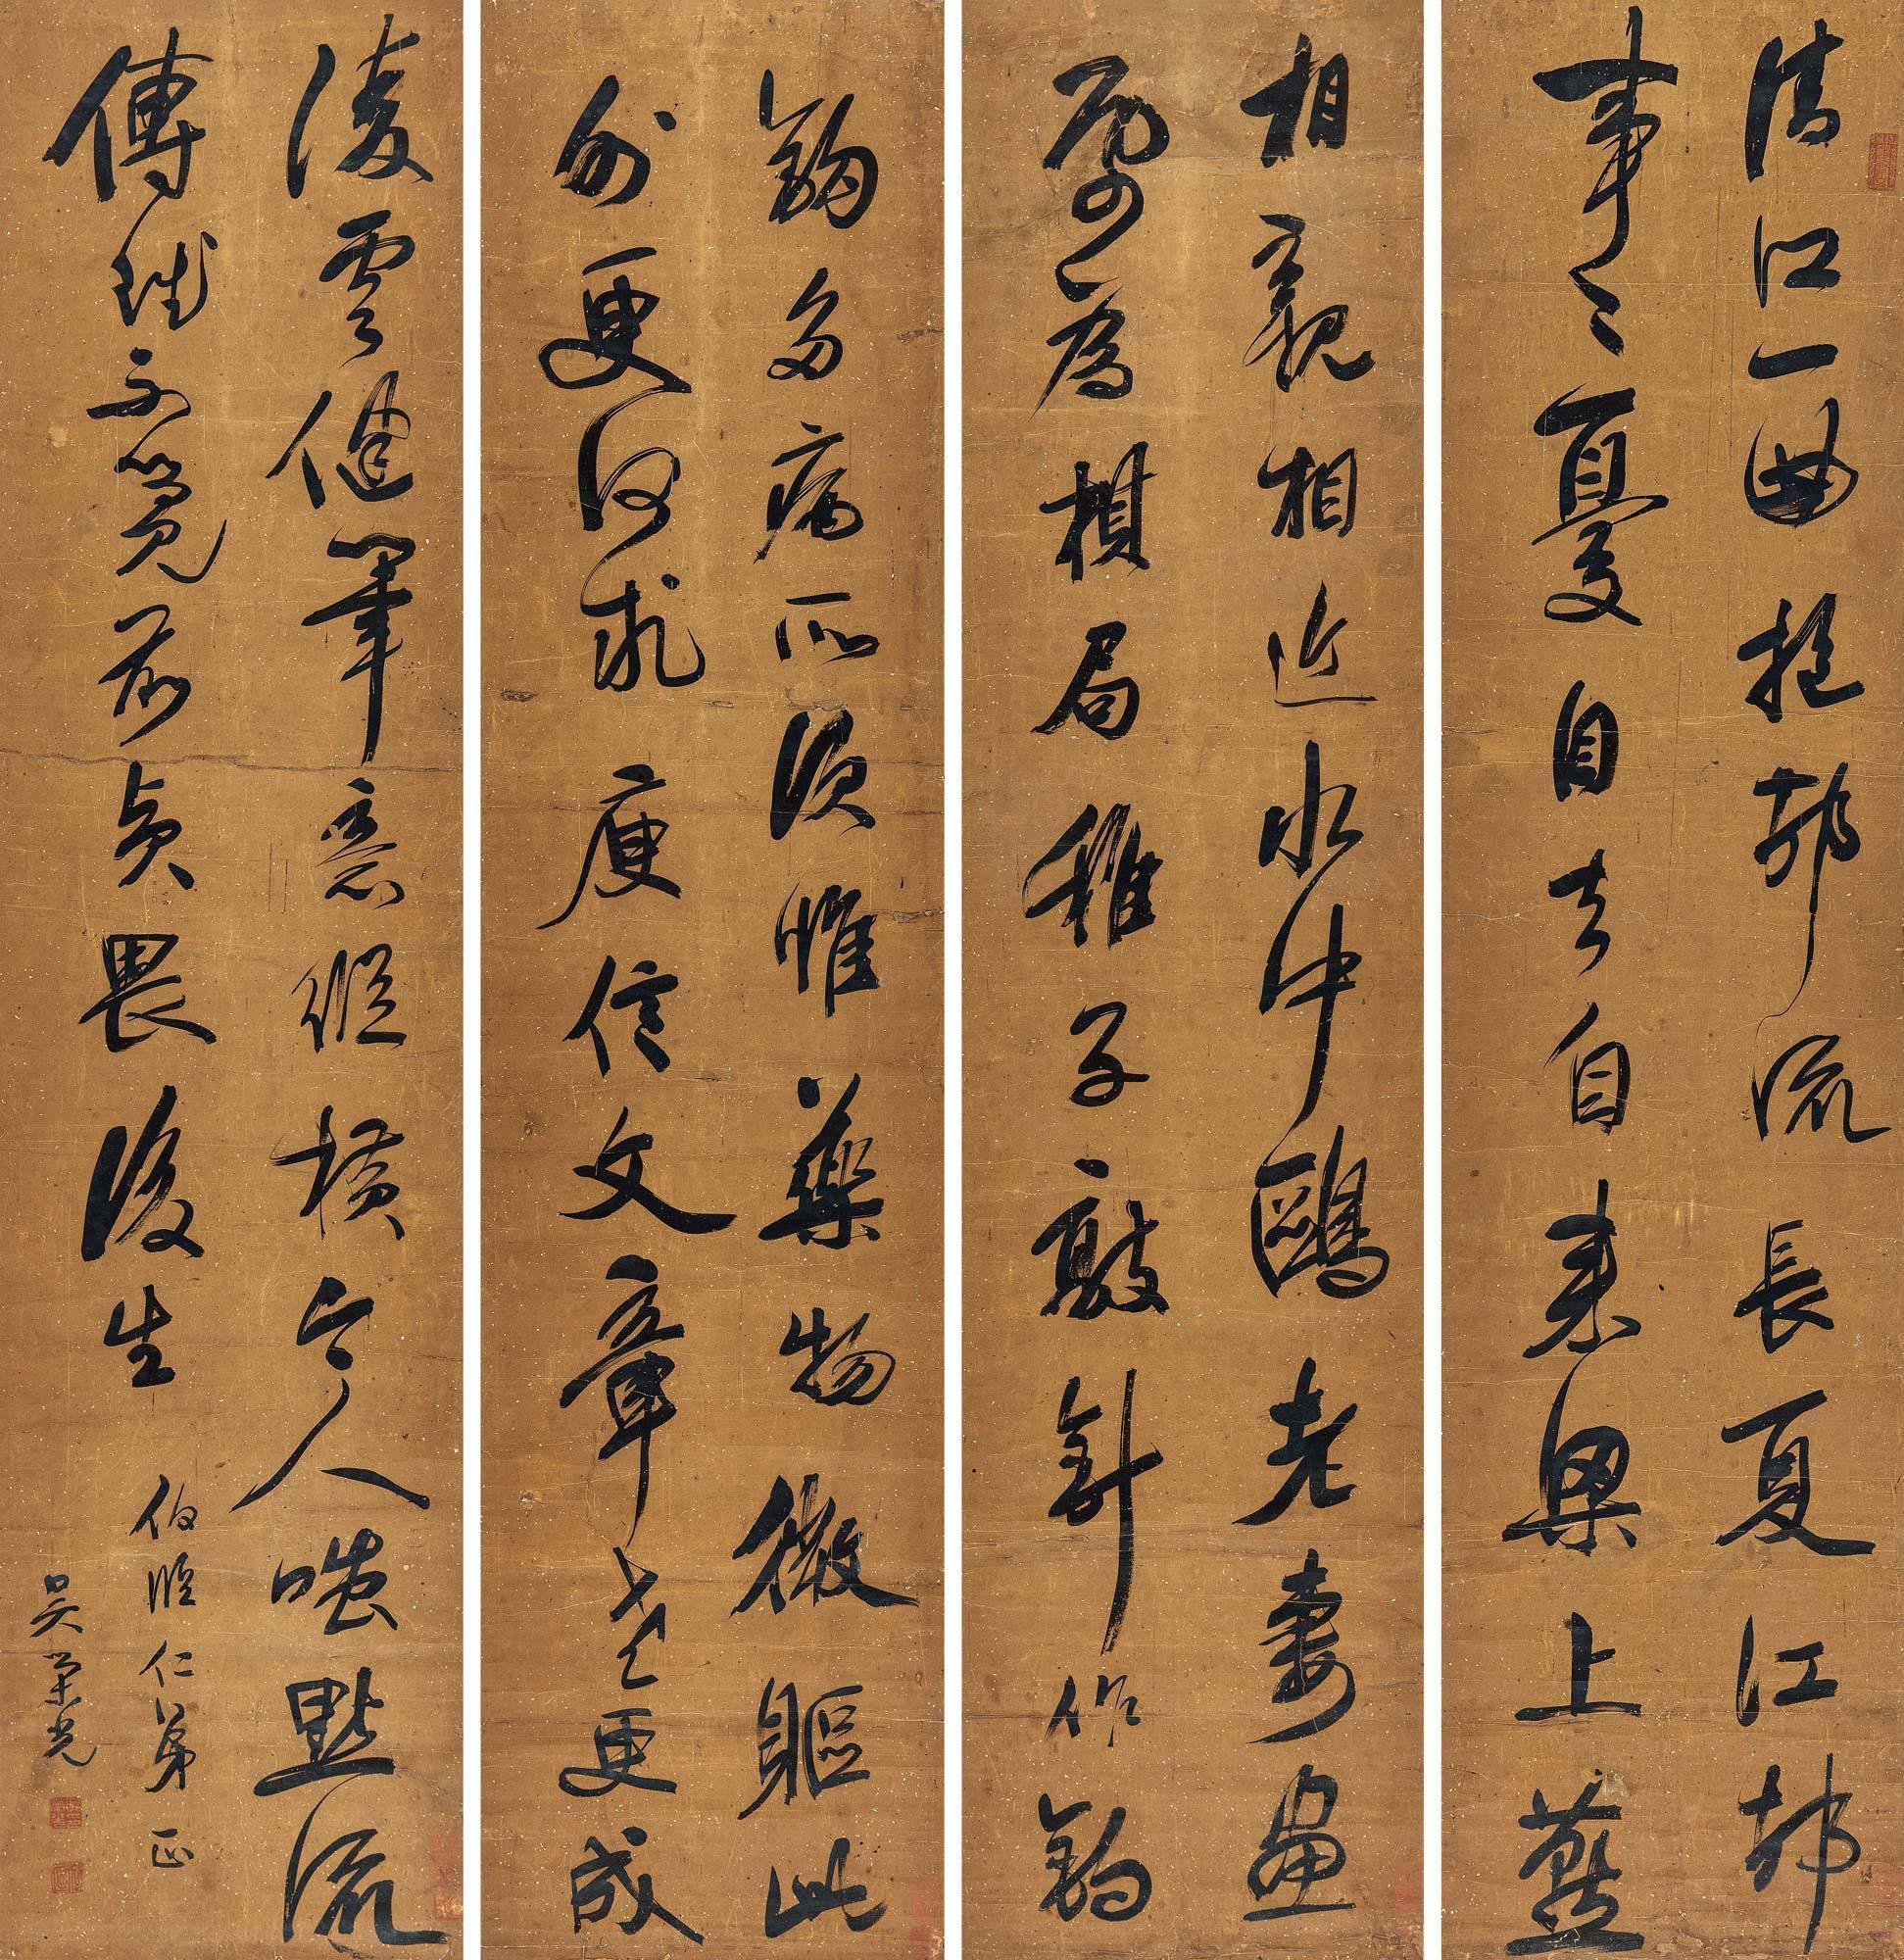 清江一曲抱邨流長夏江邨
事〻憂自去自来梁上燕
相親相近水中鷗老妻画
帋為棋局稚子敲針作鈎
鈎多病所須惟藥物微軀此
外更何求庾信文章老更成
凌雲健筆意縱橫今人嗤點流
傳賦不覺前賢畏後生
伯臨仁弟正
吴荣光